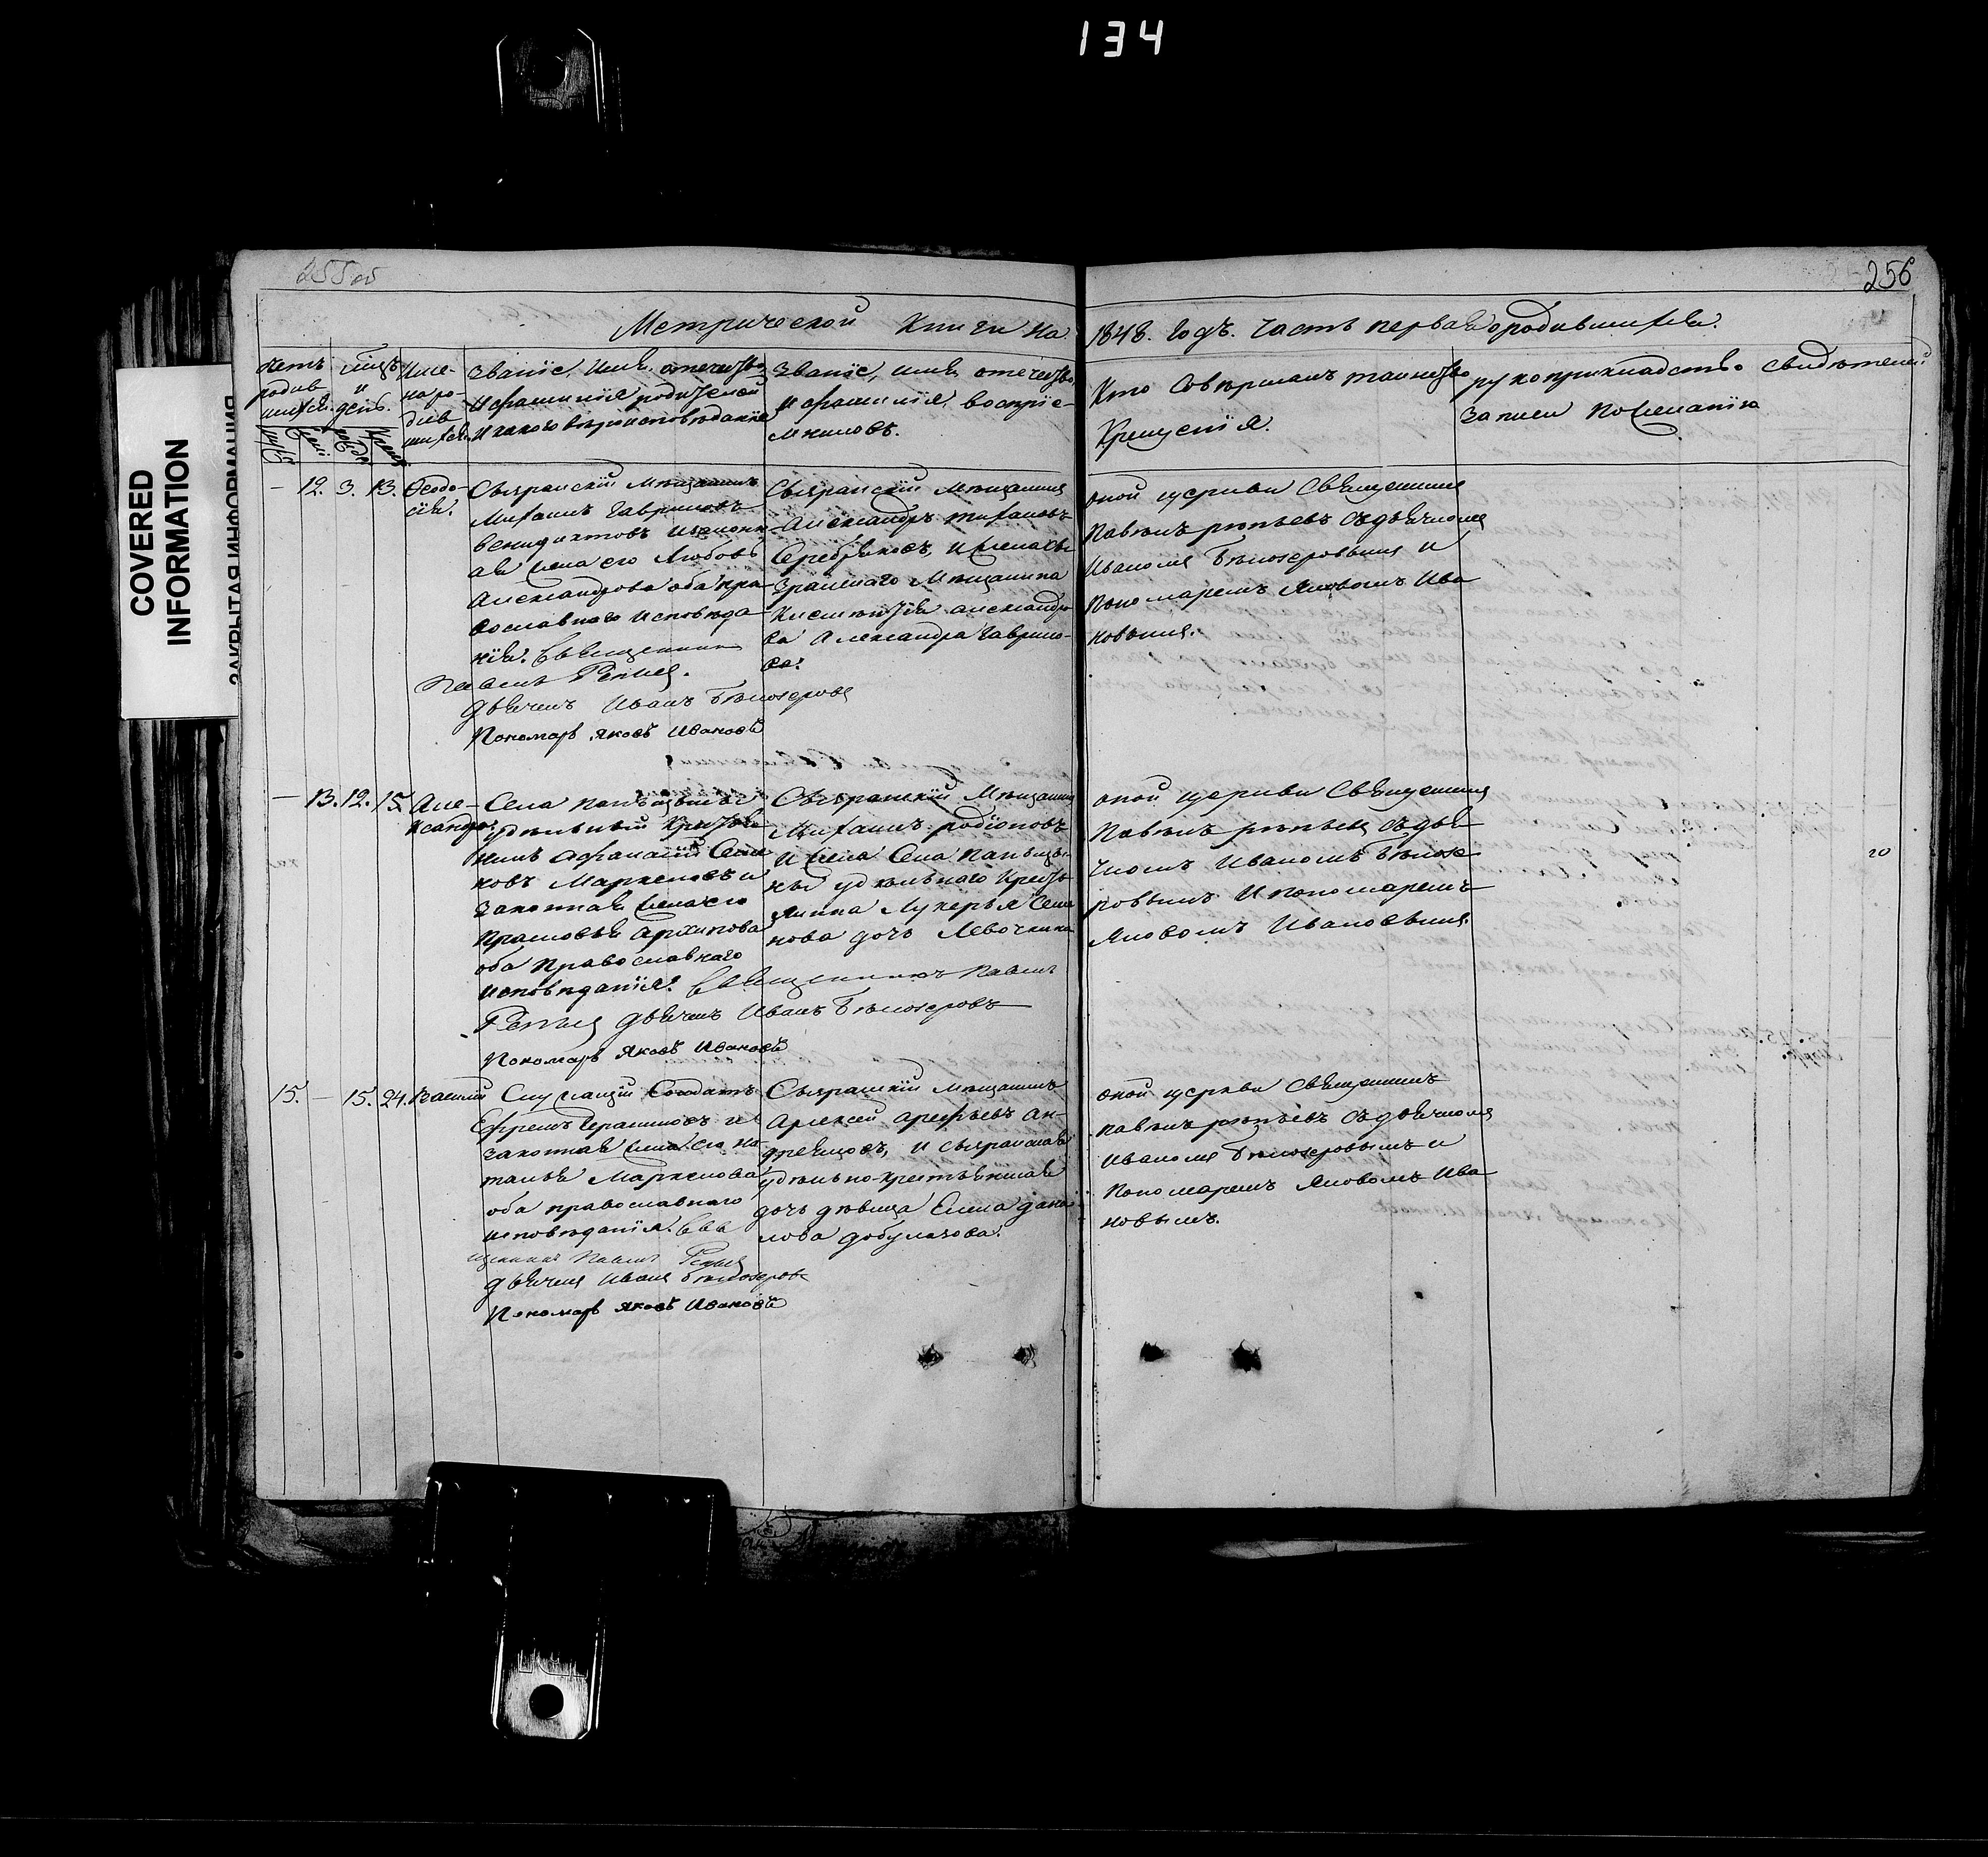 134
COVERED
INFORMATION
ЗАКРЫТАЯ ИНФОРМАЦИЯ
255об
256
Метрической Книги на
1848. Годъ. Часть первая о родившихся.
Счетъ
родив
шихся.
Мѣсяцъ
и
день.
Име-
на ро-
див
шихся.
Званіе, Имя, отечество
И фамилія родителей
И какого вѣроисповѣданія
Званіе, имя отечество,
И фамилія, воспріе-
мниковъ.
Кто Совершалъ таинство
Крещенія.
рукоприкладство свидѣтелей
записи По желанію
— 12. 3. 13. Ѳеодо-
сія.
Сызранскій Мѣщанинъ
Михаилъ Гавриловъ
Венидиктовъ и законн
ая жена его Любовь
Александрова оба пра
вославнаго исповѣда
нія. Священникъ
Павелъ Репьев.
дьячекъ Иванъ Бѣлозеровъ
Пономарь Яковъ Ивановъ
Сызранскій мѣщанинъ
Александръ Михаиловъ
Серебряковъ, и жена сы
зранскаго Мѣщанина
Александро
ва Александра Гаврило-
ва.
оной церкви Священникъ
Павелъ рѣпьевъ съ дьячкомъ
Иваномъ Бѣлозеровымъ и
Пономаремъ Яковомъ Ива
новымъ.
— 13. 12. 15. Але-
ксандръ.
Села
удѣльный Крестья
нинъ Афанасій Семе
новъ Маркеловъ и
Законная жена его
Прасковья Архипова
оба Православнаго
исповѣданія. Священникъ Павелъ
Репьев дьячекъ Иванъ Бѣлозеровъ
Пономарь Яковъ Ивановъ
Сызранскій Мѣщанинъ
Михаилъ родіоновъ
И жена Села
удѣльнаго Кресть
янина Лукерья Семе
нова дочь Левочкина
оной церкви Священникъ
Павелъ рѣпьевъ съ дья
чкомъ Иваномъ Бѣлозе
ровымъ И пономаремъ
Яковомъ Ивановымъ
15. — 15. 24. Василій
Служащій Солдатъ
Ефремъ Герасимовъ и
законная жена его На
талья Маркелова
оба православнаго
исповѣданія. Свя
щенникъ Павелъ Репьев
дьячекъ Иванъ Бѣлозеровъ
Пономарь Яковъ Ивановъ
Сызранскій мѣщанинъ
Алексей Арефьевъ Ан-
дреяновъ, и сызранская
удѣльно-крестьянская
дочь дѣвица Елена Дани
лова
оной церкви Священникъ
павелъ рѣпьевъ съ дьячкомъ
Иваномъ Бѣлозеровымъ и
Пономаремъ Яковомъ Ива
новымъ.